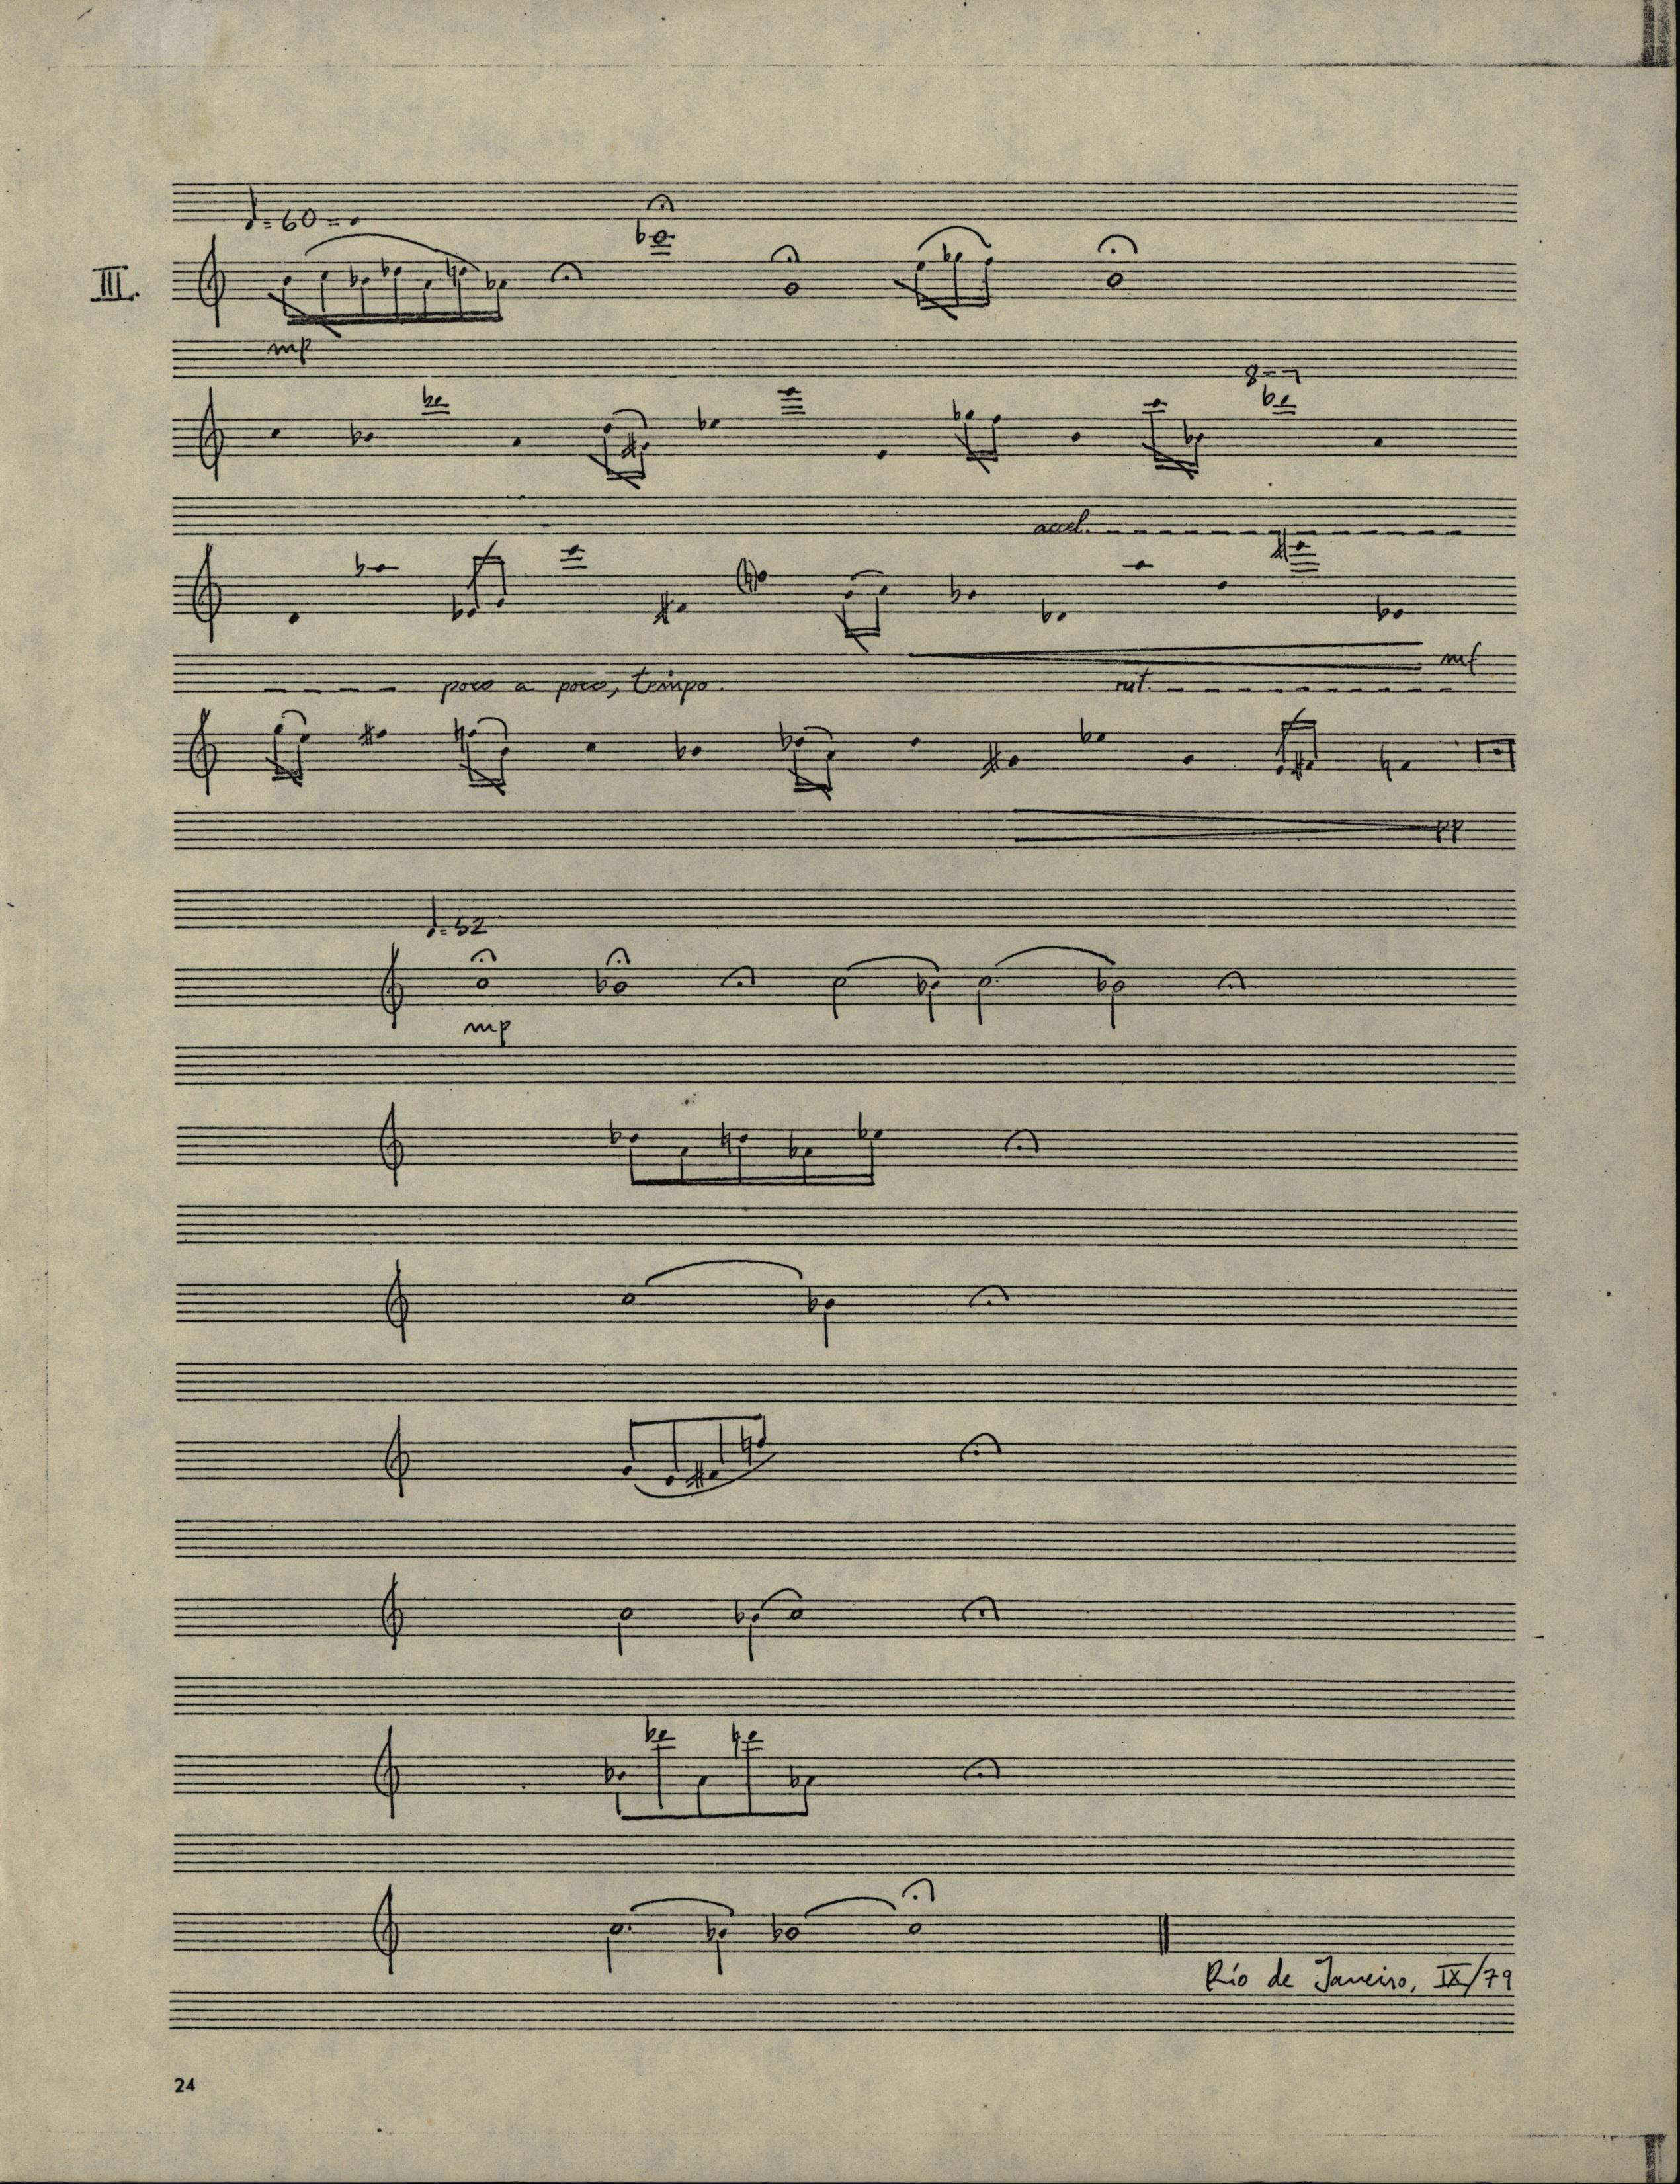 ♩= 60 = 𝅘
III.
mp
8--¬
accel.
mf
poco a poco, tempo.
rit.
pp
♩= 52
mp
Río de Janeiro, IX/79
24